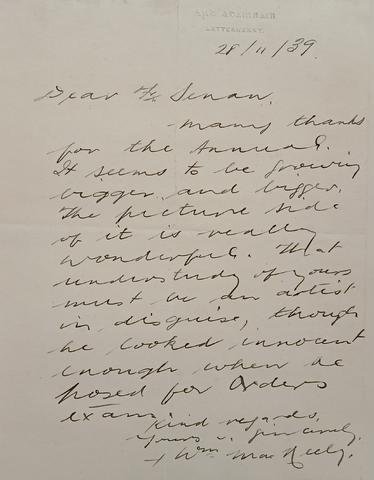 LETTERKENNY.
28/11/39.
Dear Fr Senan,
Many thanks
for the Annual.
It seems to be growing
bigger and bigger.
The picture side
of it is really
wonderful. That
understudy of yours
must be an artist
in disguise, though
he looked innocent
enough when he
posed for Orders
exam.
Kind regards,
Yours v. sincerely,
+ Wm MacNeely.